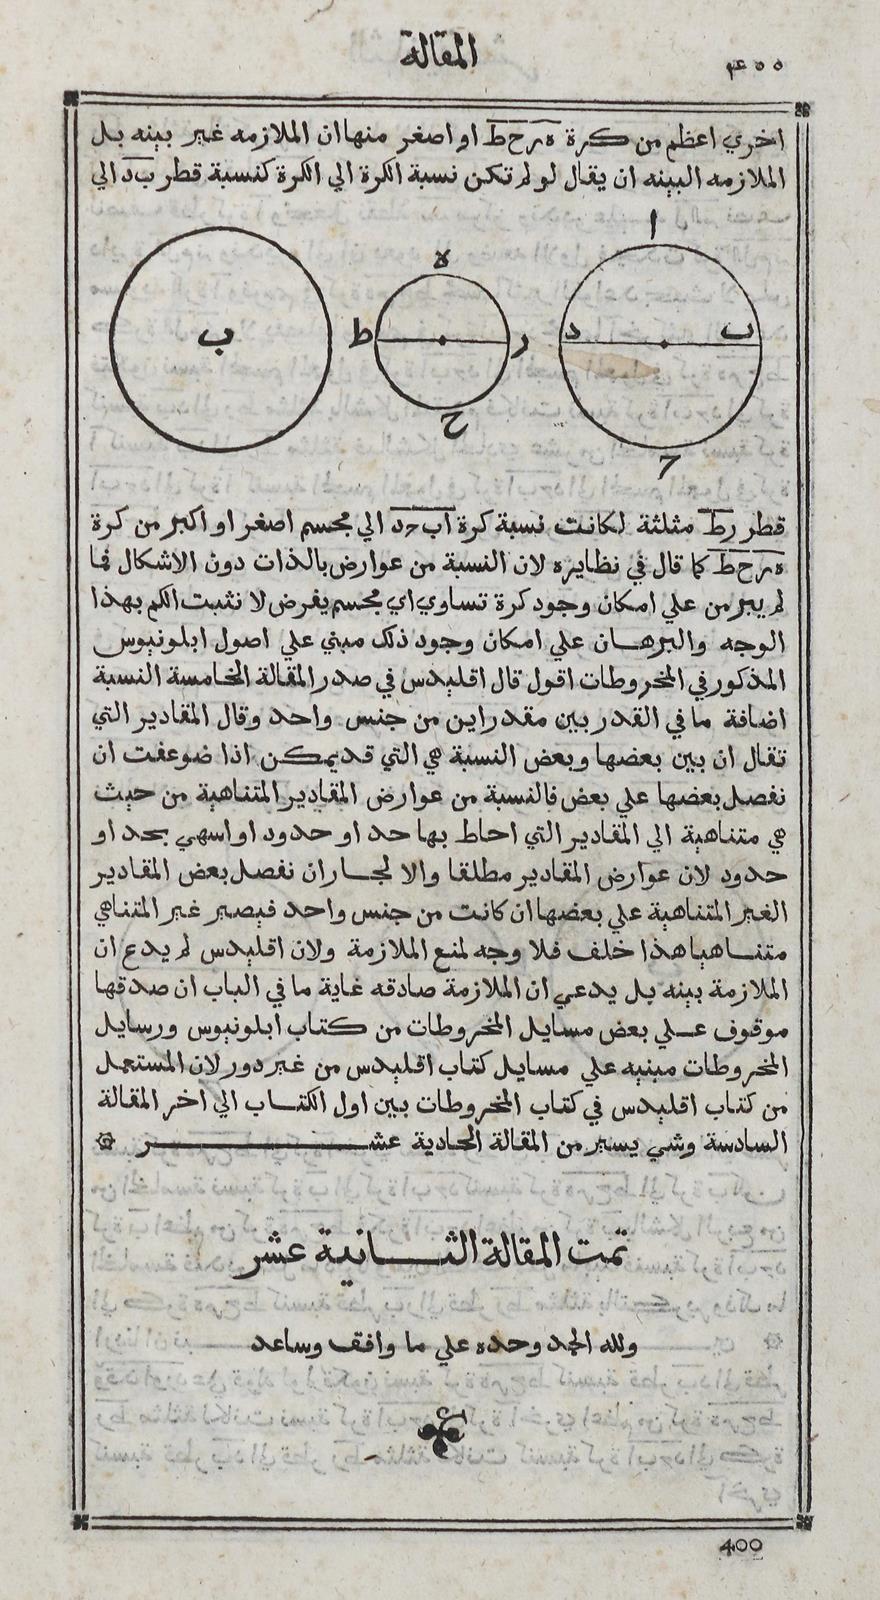 المقالة
٤٠٠
اخري اعظم من كرة ه ر ح ط او اصغر منها ان الملازمه غير بينه بل
الملازمه البينه ان يقال لو لم تكن نسبة الكرة الي الكرة كنسبة قطر ب د الي
ا
ه
ب
ط
ر
د
ب
ح
ج
قطر ر ط مثلثة لكانت نسبة كرة ا ب ج د الي مجسم اصغر او اكبر من كرة
ه ر ح ط كما قال في نظايره لان النسبة من عوارض بالذات دون الاشكال فما
لم يبرمن علي امكان وجود كرة تساوي اي مجسم يفرض لا نثبت الكم بهذا
الوجه والبرهان علي امكان وجود ذلك مبني علي اصول ابلونيوس
المذكور في المخروطات اقول قال اقليدس في صدر المقالة الخامسة النسبة
اضافة ما في القدر بين مقدراين من جنس واحد وقال المقادير التي
تقال ان بين بعضها وبعض النسبة هي التي قد يمكن اذا ضوعفت ان
نفصل بعضها علي بعض فالنسبة من عوارض المقادير المتناهية من حيث
هي متناهية الي المقادير التي احاط بها حد او حدود او اسهي بحد او
حدود لان عوارض المقادير مطلقا والا لجاران نفصل بعض المقادير
الغير المتناهية علي بعضها ان كانت من جنس واحد فيصير غير المتناهي
متناهيا هذا خلف فلا وجه لمنع الملازمة ولان اقليدس لم يدع ان
الملازمة بينه بل يدعي ان الملازمة صادقه غاية ما في الباب ان صدقها
موقوف علي بعض مسايل المخروطات من كتاب ابلونيوس ورسايل
المخروطات مبنيه علي مسايل كتاب اقليدس من غير دور لان المستعمل
من كتاب اقليدس في كتاب المخروطات بين اول الكتاب الي اخر المقالة
السادسة وشي يسير من المقالة الحادية عشر
تمت المقالة الثانية عشر
ولله الحمد وحده علي ما وافق وساعد
400